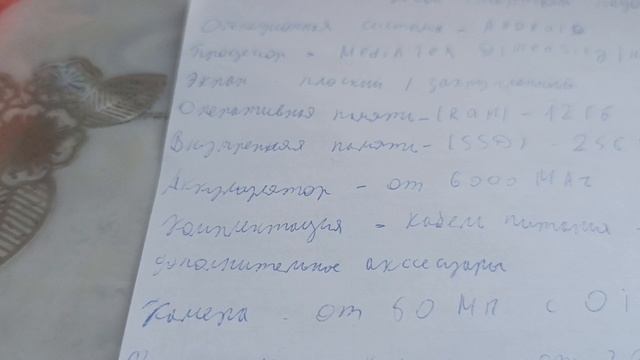 Операционная система - Android
Процессор - MediaTek Dimensity
Экран - плоский / закругленный
Оперативная память - (RAM) - 12 Гб
Внутренняя память - (SSD) - 256
Аккумулятор - от 6000 МАч
Комплектация - кабель питания -
дополнительное акссесуары
Камера - от 50 Мп с Oi